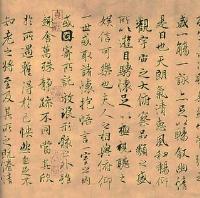 盛一觴一詠亦足以暢叙幽情
是日也天朗氣清惠風和暢仰
觀宇宙之大俯察品類之盛
所以遊目騁懷足以極視聽之
娛信可樂也夫人之相與俯仰
一世或取諸懷抱悟言一室之内
或因寄所託放浪形骸之外雖
趣舍萬殊靜躁不同當其欣
於所遇暫得於己怏然自足不
知老之將至及其所之既惓情